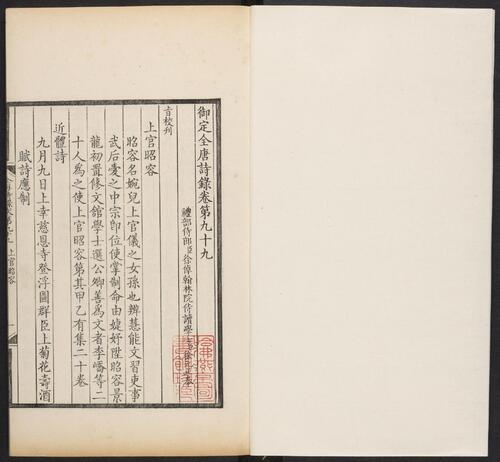 御定全唐詩錄卷第九十九
禮部侍郎臣徐倬翰林院侍讀學士臣徐
旨校刊
上官昭容
昭容名婉兒上官儀之女孫也辨慧能文習吏事
武后愛之中宗即位使掌制命由婕妤陞昭容景
龍初置修文館學士選公卿善為文者李嶠等二
十人為之使上官昭容第其甲乙有集二十卷
近體詩
九月九日上幸慈恩寺登浮圖群臣上菊花壽酒
賦詩應制
上官昭容